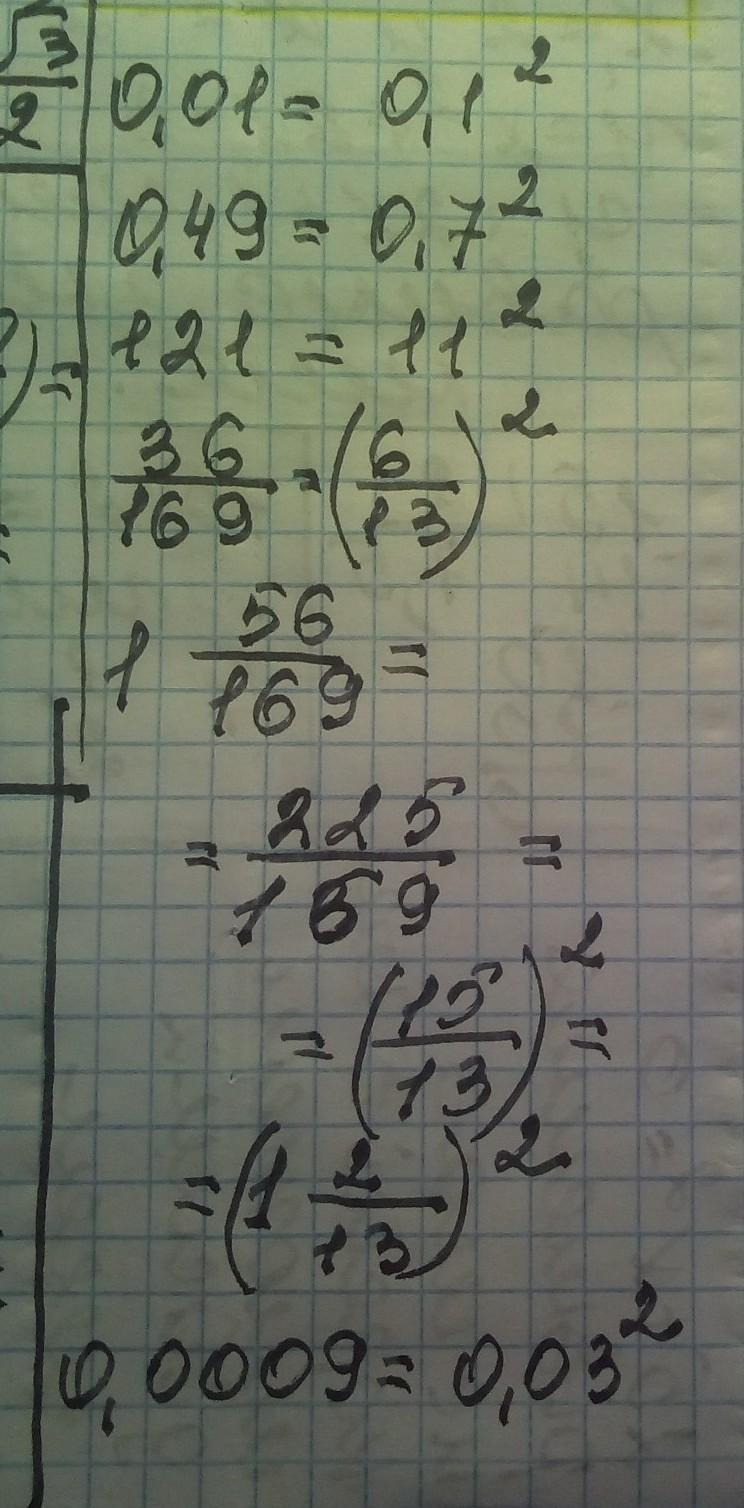 √3/2
0,01 = 0,1²
0,49 = 0,7²
121 = 11²
) =
36/169 = (6/13)²
1 56/169 =
= 225/169 =
= (15/13)² =
= (1 2/13)²
0,0009 = 0,03²